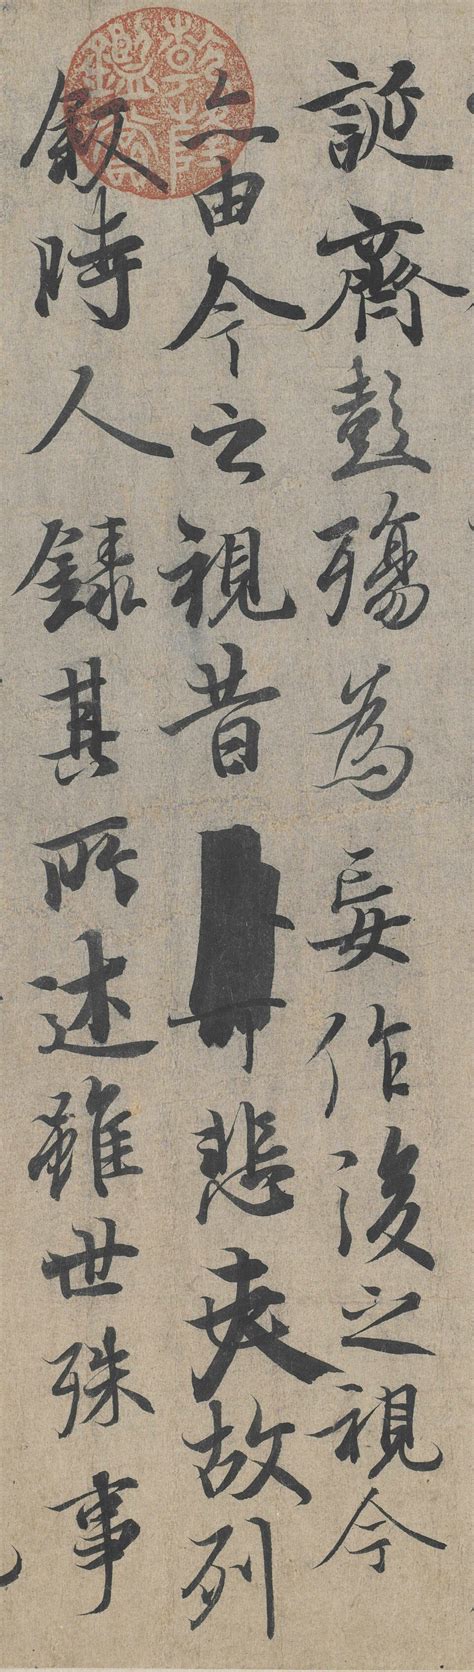 誕齊彭殤為妄作後之視今
亦由今之視昔悲夫故列
敘時人錄其所述雖世殊事
乾隆鑑賞